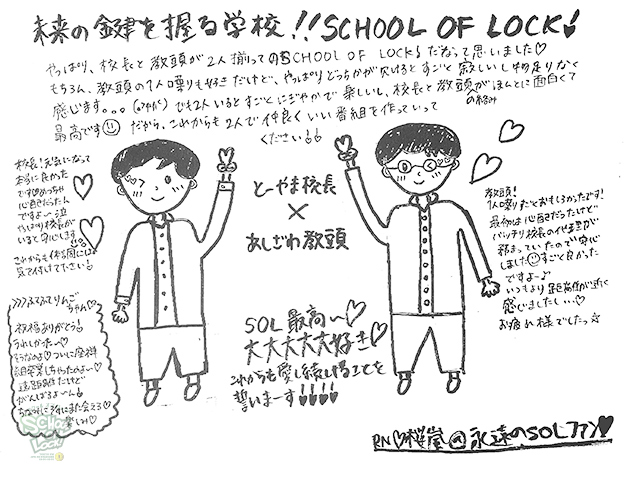 未来の鍵を握る学校!!SCHOOL OF LOCK!
やっぱり、校長と教頭が2人揃ってのSCHOOL OF LOCK!だなって思いました♡
もちろん、教頭の1人喋りも好きだけど、やっぱりどっちかが欠けるとすごく寂しいし物足りなく
感じます。。。 でも2人いるとすごくにぎやかで楽しいし、校長と教頭がほんとに面白くて
の絡み
最高です だから、これからも2人で仲良くいい番組を作っていって
ください!!
校長!元気になって
本当に良かった
です
心配だったん
ですよ〜泣
やっぱり校長が
いると安心します
これからも体調には
気を付けて下さい!
とーやま校長
×
あしざわ教頭
教頭!
1人喋りだとおもしろかったです!
最初は心配だったけど
バッチリ校長の代わりが
務まっていたので安心
しました すごく良かった
ですよー♪
いつもより距離感が近く
感じましたし…♡
お疲れ様でしたっ☆
りんご
ちゃん♡
祝福ありがとう!
うれしかった〜♡
SOL最高〜♡
大大大大大好き♡
これからも愛し続けることを
誓いまーす!!!!
RN♡桜嵐@永遠のSOLファン♥